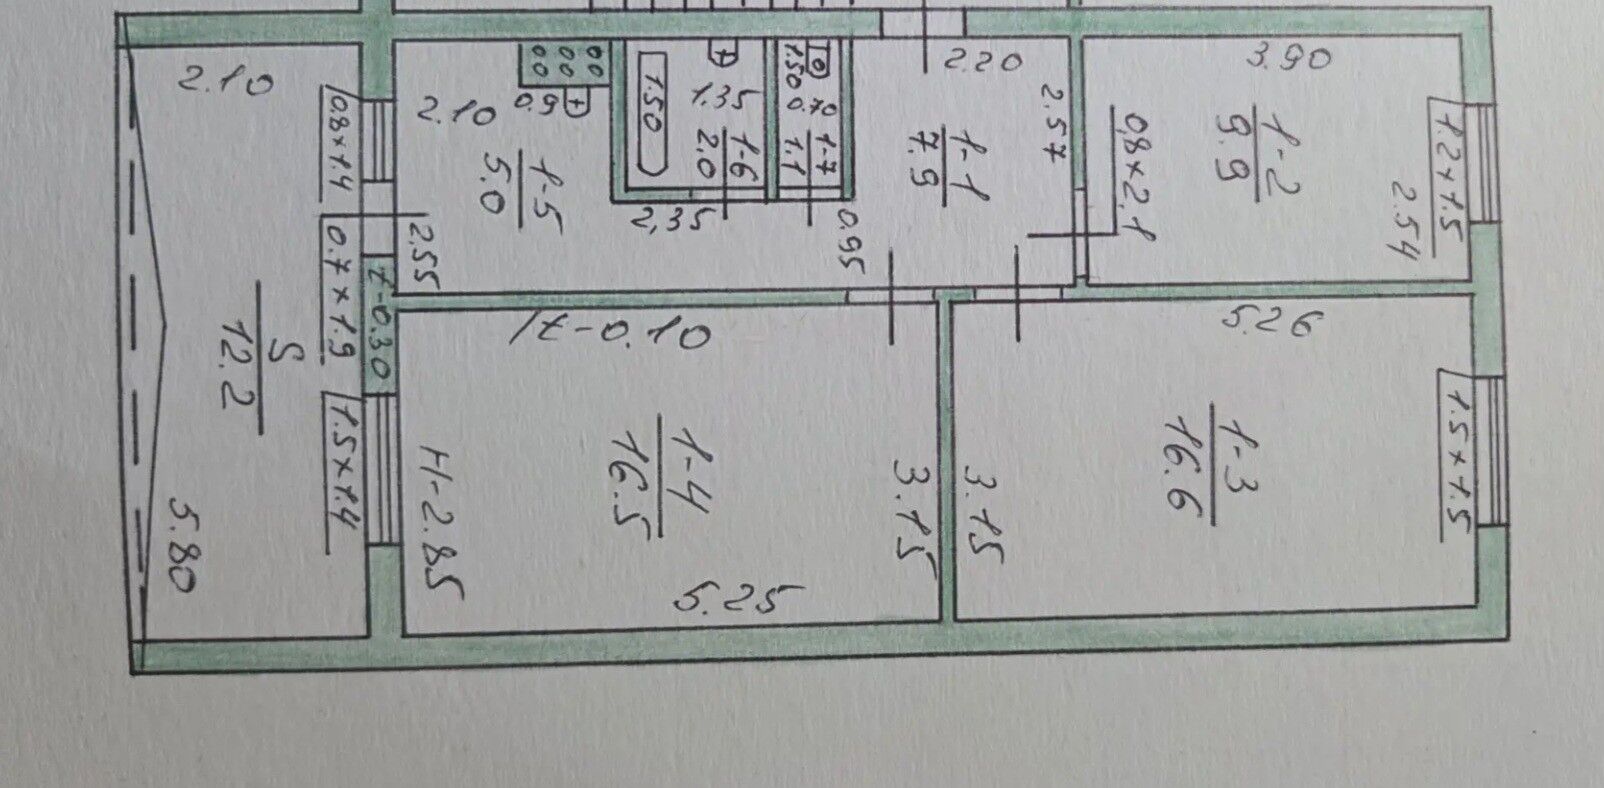 2.10
0.8×1.4
0.7×1.9
1.5×1.4
S
12.2
5.80
2.10
0.9
1-5
5.0
2.55
7-0.30
1.50
1.35
1-6
2.0
2,35
1.50
0.70
1-7
1.1
0.95
2.20
1-1
7.9
2.57
0,8×2.1
3.90
1-2
9.9
1.2×1.5
2.54
7-0.10
H-2.85
1-4
16.5
3.15
5.25
5.26
3.15
1-3
16.6
1.5×1.5